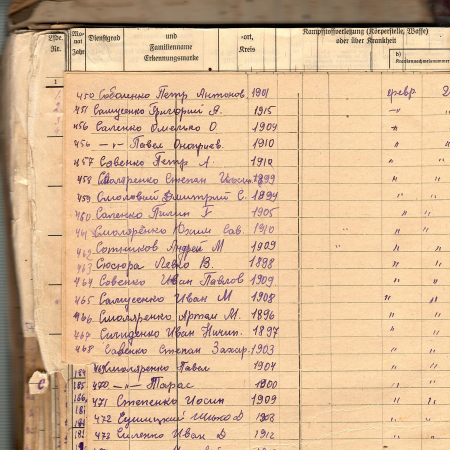 Lfde. Nr. Mo- nat Jahr Dienstgrad und Familienname Erkennungsmarke -ort, Kreis Kampfstoffverletzung (Körperstelle, Waffe) oder über Krankheit
b)
Krankenbuchnummer
1
450 Соболенко Петр Антонов. 1901 февр. 2
451 Самусенко Григорий Я. 1915 -"-
456 Саленко Омелько О 1909 "
456 -"- Павел Оноприев. 1910 " "
457 Савенко Петр А. 1910 " "
458 Смоляренко Степан 1899 " "
459 Смоловий Дмитрий С. 1894 " "
460 Саленко Пилип Г 1905 " "
Смоляренко Юхим Сав. 1910 " "
462 Сотников Андрей М 1909 " "
463 Сюсюра Левко В. 1898 " "
464 Совенко Иван Павлов 1909 " "
465 Самусенко Иван М 1908 " "
466 Смоляренко Артем М. 1896 " "
467 Иван Ничип. 1897 " "
468 Савенко Степан Захар. 1903 " "
184 Смоляренко Павел 1904 " "
185 470 -"- Тарас 1900 " "
471 Степенко Иосип 1909 " "
472 Д 1908 " "
473 Силенко Иван Д 1912 " "